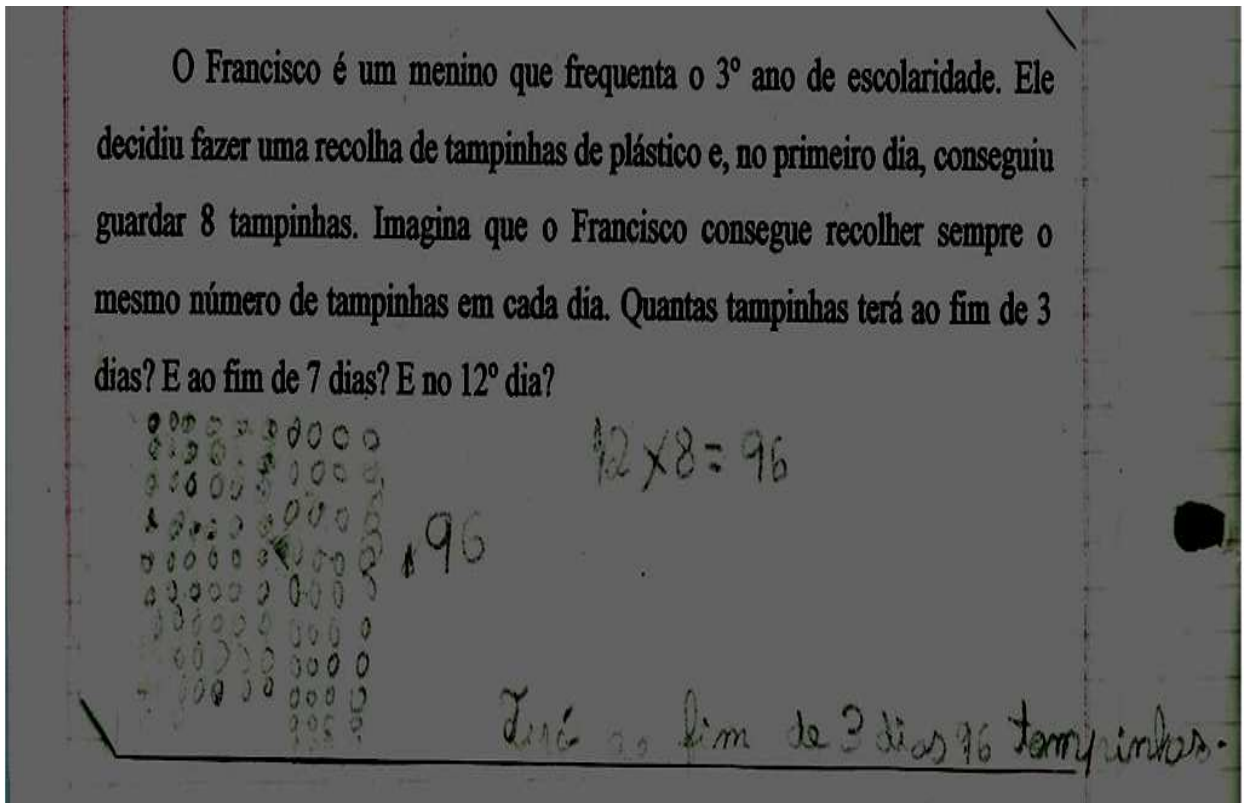 O Francisco é um menino que frequenta o 3º ano de escolaridade. Ele
decidiu fazer uma recolha de tampinhas de plástico e, no primeiro dia, conseguiu
guardar 8 tampinhas. Imagina que o Francisco consegue recolher sempre o
mesmo número de tampinhas em cada dia. Quantas tampinhas terá ao fim de 3
dias? E ao fim de 7 dias? E no 12º dia?
12 x 8 = 96
96
ao fim de 3 dias 96 tampinhas.